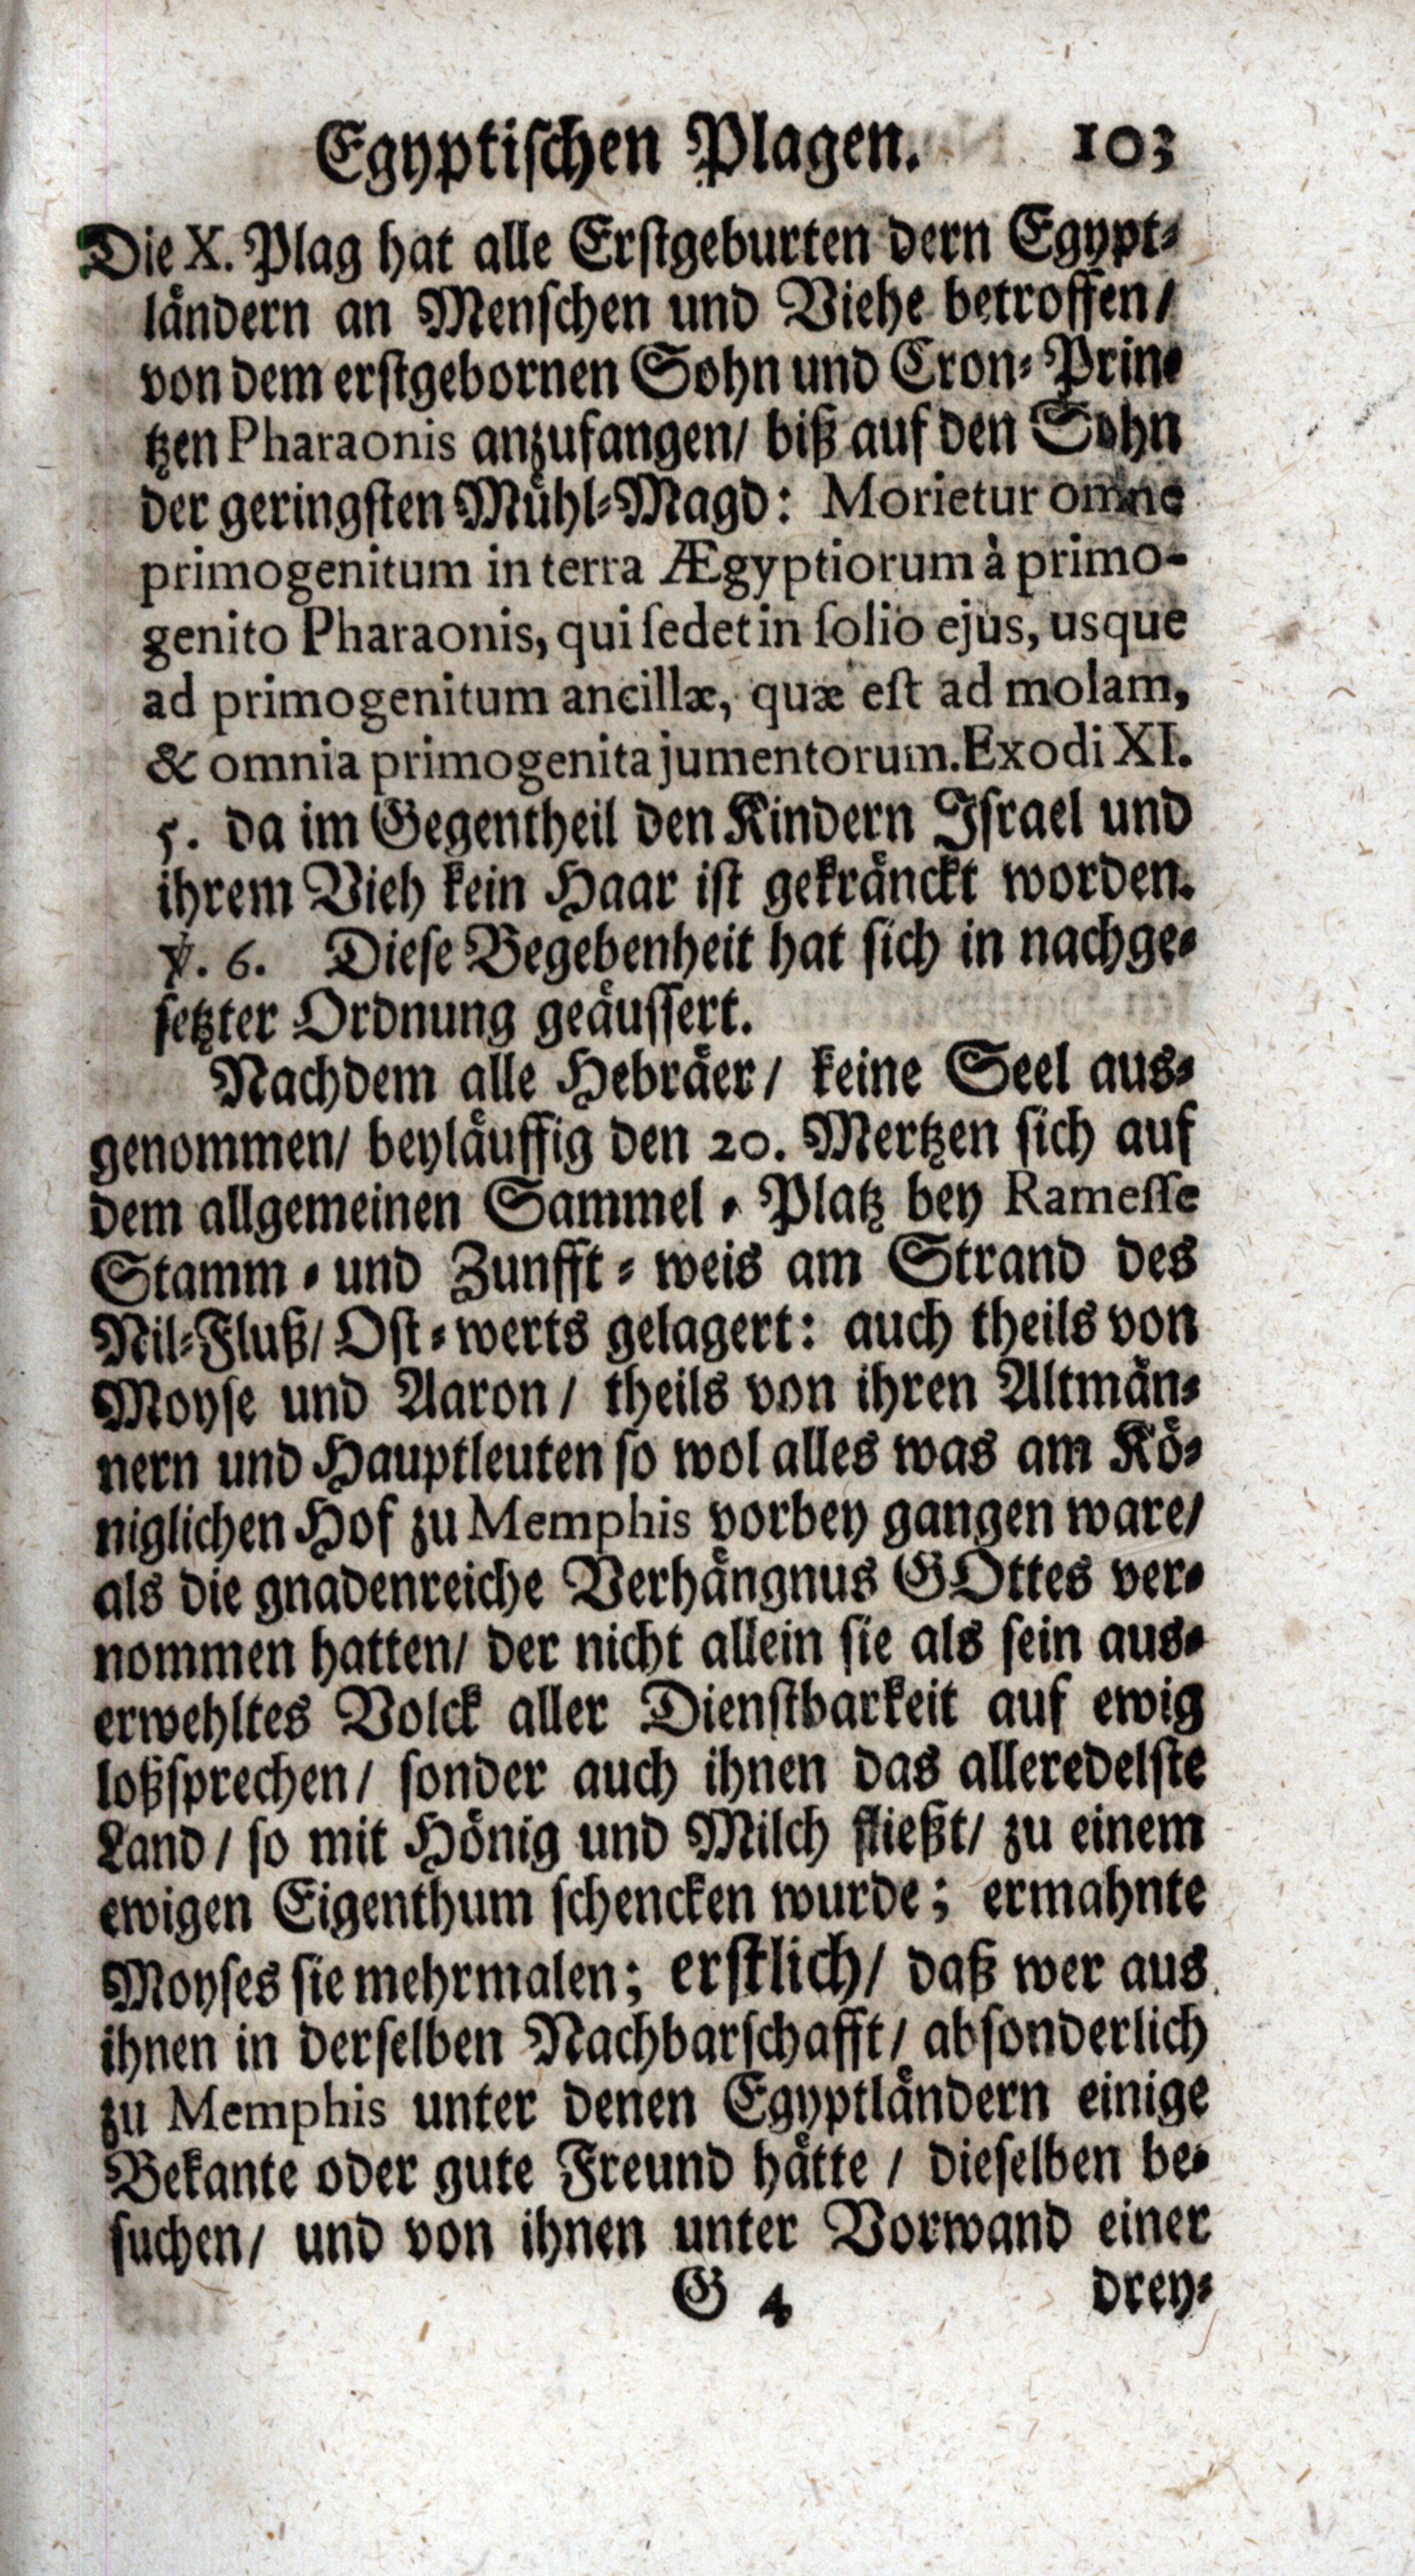 Egyptischen Plagen. 103
Die X. Plag hat alle Erstgeburten dern Egypt-
ländern an Menschen und Viehe betroffen/
von dem erstgebornen Sohn und Cron-Prin-
tzen Pharaonis anzufangen/ biß auf den Sohn
der geringsten Mühl-Magd: Morietur omne
primogenitum in terra Ægyptiorum à primo-
genito Pharaonis, qui ſedet in ſolio ejus, usque
ad primogenitum ancillæ, quæ eſt ad molam,
& omnia primogenita jumentorum. Exodi XI.
5. da im Gegentheil den Kindern Israel und
ihrem Vieh kein Haar ist gekränckt worden.
℣. 6. Diese Begebenheit hat sich in nachge-
setzter Ordnung geäussert.
Nachdem alle Hebräer/ keine Seel aus-
genommen/ beyläuffig den 20. Mertzen sich auf
dem allgemeinen Sammel-Platz bey Rameſſe
Stamm- und Zunfft-weis am Strand des
Nil-Fluß/ Ost-werts gelagert: auch theils von
Moyse und Aaron/ theils von ihren Altmän-
nern und Hauptleuten so wol alles was am Kö-
niglichen Hof zu Memphis vorbey gangen ware/
als die gnadenreiche Verhängnus GOttes ver-
nommen hatten/ der nicht allein sie als sein aus-
erwehltes Volck aller Dienstbarkeit auf ewig
loßsprechen/ sonder auch ihnen das alleredelste
Land/ so mit Hönig und Milch fließt/ zu einem
ewigen Eigenthum schencken wurde; ermahnte
Moyses sie mehrmalen; erstlich/ daß wer aus
ihnen in derselben Nachbarschafft/ absonderlich
zu Memphis unter denen Egyptländern einige
Bekante oder gute Freund hätte/ dieselben be-
suchen/ und von ihnen unter Vorwand einer
G 4 drey-